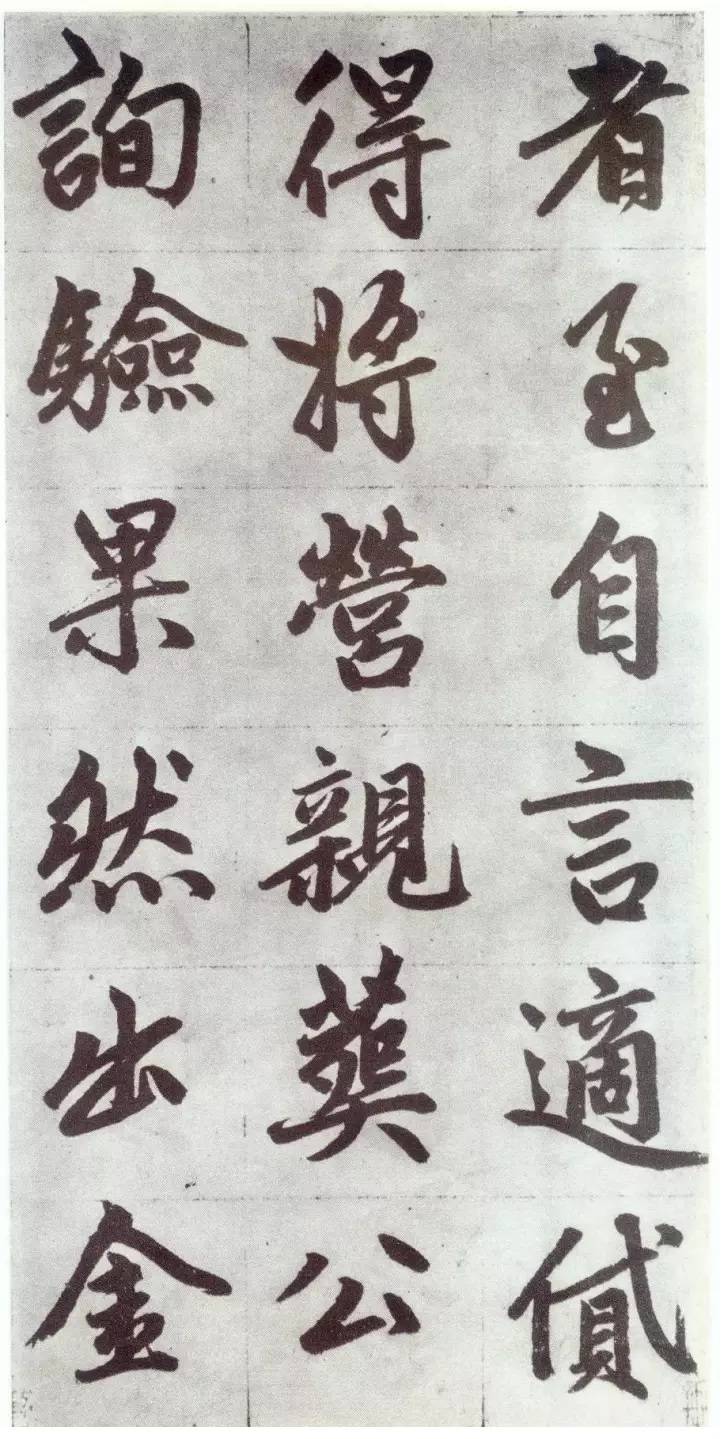 者至自言適貸
得將營親葬公
詢驗果然出金